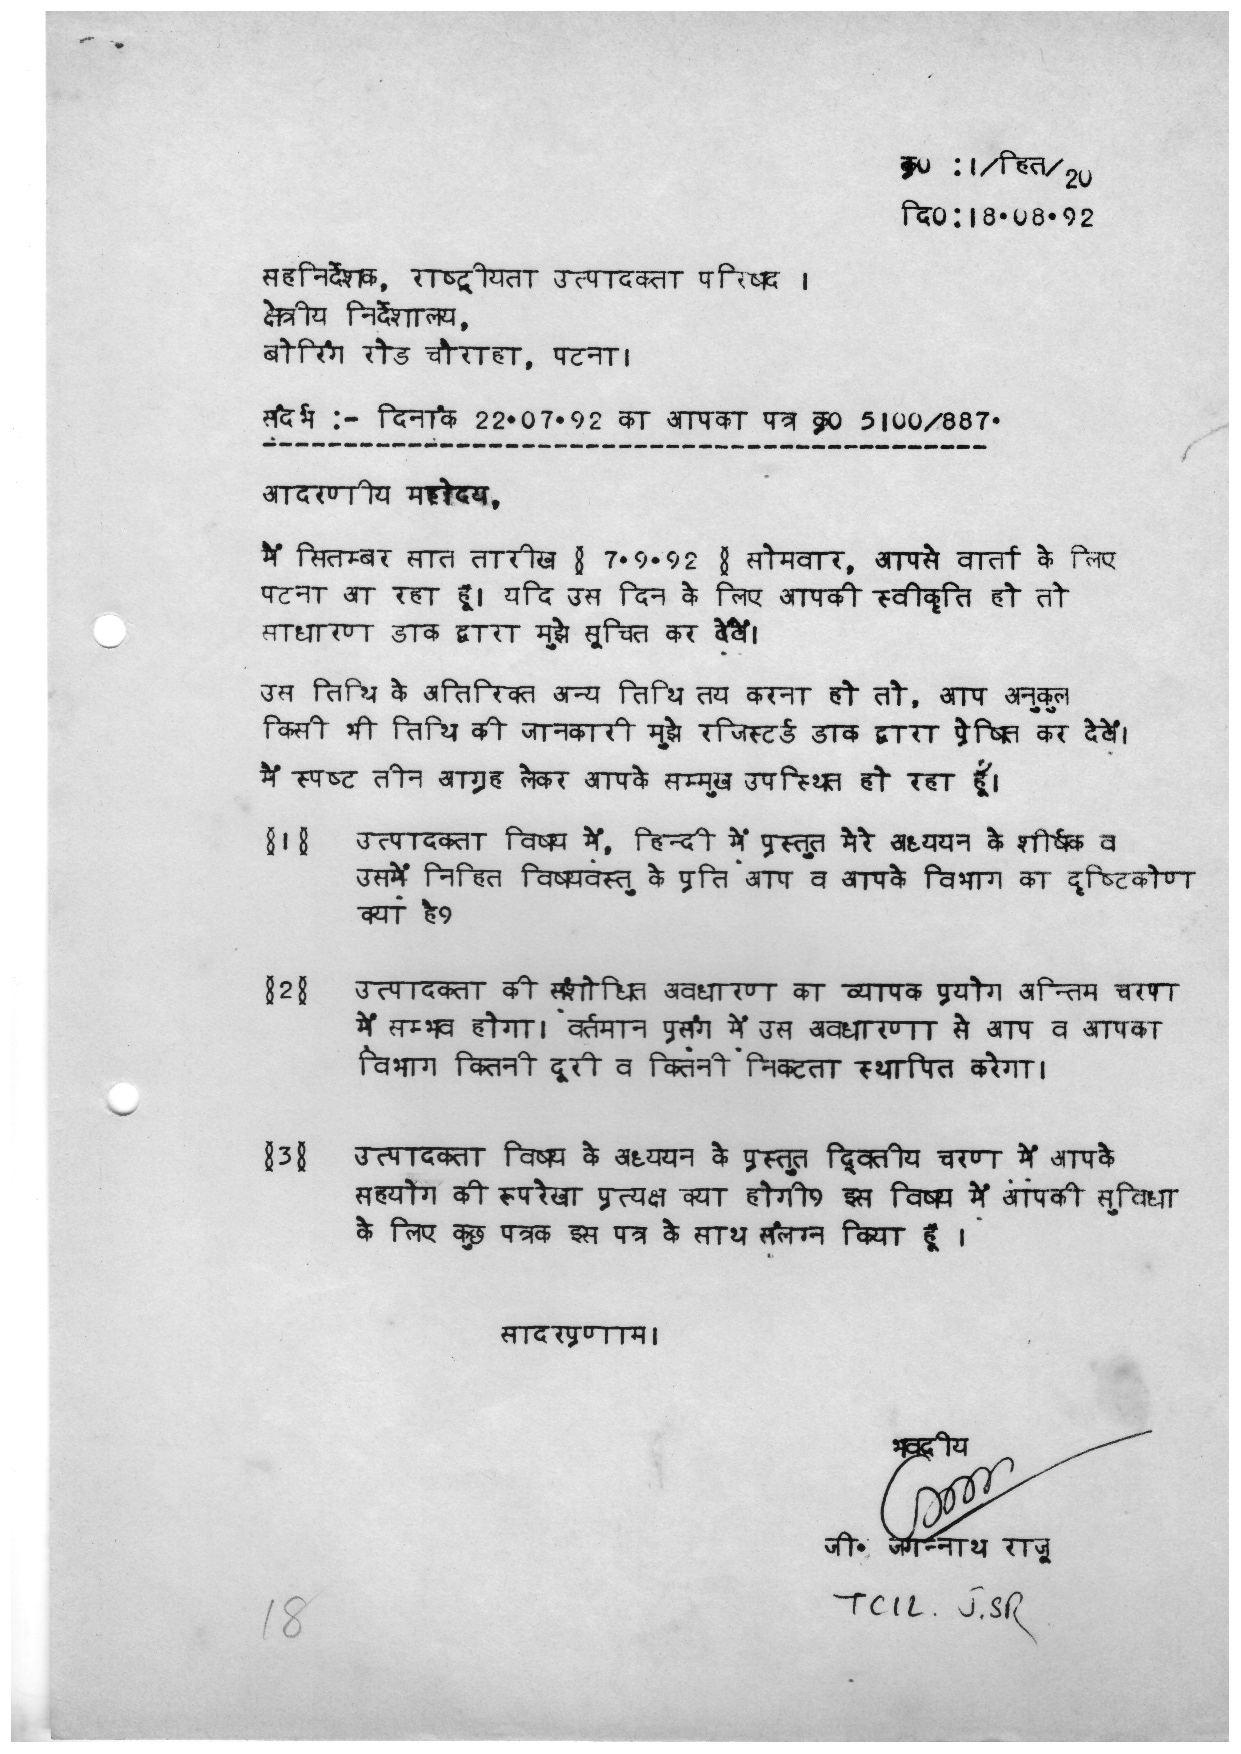 क्र0 :1/हित/20
दि0:18·08·92
सहनिर्देशक, राष्ट्रीयता उत्पादकता परिषद ।
क्षेत्रीय निर्देशालय,
बोरिंग रोड चौराहा, पटना।
संदर्भ :- दिनांक 22·07·92 का आपका पत्र क्र0 5100/887·
आदरणीय महोदय,
मैं सितम्बर सात तारीख § 7·9·92 § सोमवार, आपसे वार्ता के लिए
पटना आ रहा हूँ। यदि उस दिन के लिए आपकी स्वीकृति हो तो
साधारण डाक द्वारा मुझे सूचित कर देवें।
उस तिथि के अतिरिक्त अन्य तिथि तय करना हो तो, आप अनुकुल
किसी भी तिथि की जानकारी मुझे रजिस्टर्ड डाक द्वारा प्रेषित कर देवें।
मैं स्पष्ट तीन आग्रह लेकर आपके सम्मुख उपस्थित हो रहा हूँ।
§1§ उत्पादकता विषय में, हिन्दी में प्रस्तुत मेरे अध्ययन के शीर्षक व
उसमें निहित विषयवस्तु के प्रति आप व आपके विभाग का दृष्टिकोण
क्या है?
§2§ उत्पादकता की संशोधित अवधारण का व्यापक प्रयोग अन्तिम चरण
में सम्भव होगा। वर्तमान प्रसंग में उस अवधारणा से आप व आपका
विभाग कितनी दूरी व कितनी निकटता स्थापित करेगा।
§3§ उत्पादकता विषय के अध्ययन के प्रस्तुत द्वितीय चरण में आपके
सहयोग की रूपरेखा प्रत्यक्ष क्या होगी? इस विषय में आपकी सुविधा
के लिए कुछ पत्रक इस पत्र के साथ संलग्न किया हूँ ।
सादरप्रणाम।
भवदीय
जी· जगन्नाथ राजू
TCIL. J.SR
18